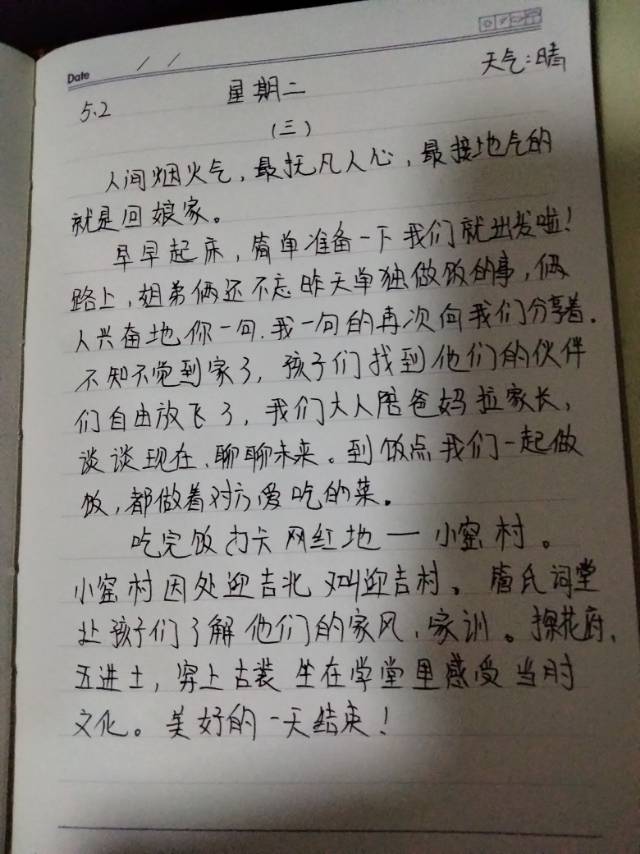 Date / /
5.2 星期二 天气:晴
(三)
人间烟火气,最抚凡人心,最接地气的
就是回娘家。
早早起床,简单准备一下我们就出发啦!
路上,姐弟俩还不忘昨天单独做饭的事,俩
人兴奋地你一句.我一句的再次向我们分享着.
不知不觉到家了,孩子们找到他们的伙伴
们自由放飞了,我们大人陪爸妈拉家长,
谈谈现在、聊聊未来。到饭点我们一起做
饭,都做着对方爱吃的菜。
吃完饭打卡网红地一小窑村。
小窑村因处迎吉北又叫迎吉村。詹氏词堂
让孩子们了解他们的家风、家训。探花府,
五进士,穿上古装坐在学堂里感受当时
文化。美好的一天结束!